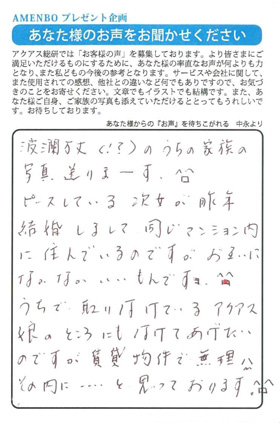 AMENBO プレゼント企画
あなた様のお声をお聞かせください
アクアス総研では「お客様の声」を募集しております。より皆さまにご
満足いただけるものにするために、あなた様の率直なお声が何よりも力
となり、また私どもの今後の参考となります。サービスや会社に関して、
また使用されての感想、他社との違いなど何でもありですので、お気づ
きのことをお寄せください。文章でもイラストでも結構です。また、あな
た様ご自身、ご家族の写真も添えていただけるととってもうれしいで
す。お待ちしております。
あなた様からの『お声』を待ちこがれる 中永より
波瀾万丈(!?)のうちの家族の
写真送りまーす。^^
ピースしている 次女が昨年
結婚しまして 同じマンション内
に住んでいるのですが お互いに
なかなか いいもんです。^^
うちで 取り付けている アクアス
娘のところにも付けてあげたい
のですが 賃貸物件で 無理。^^
その内に…… と 思っております。^^